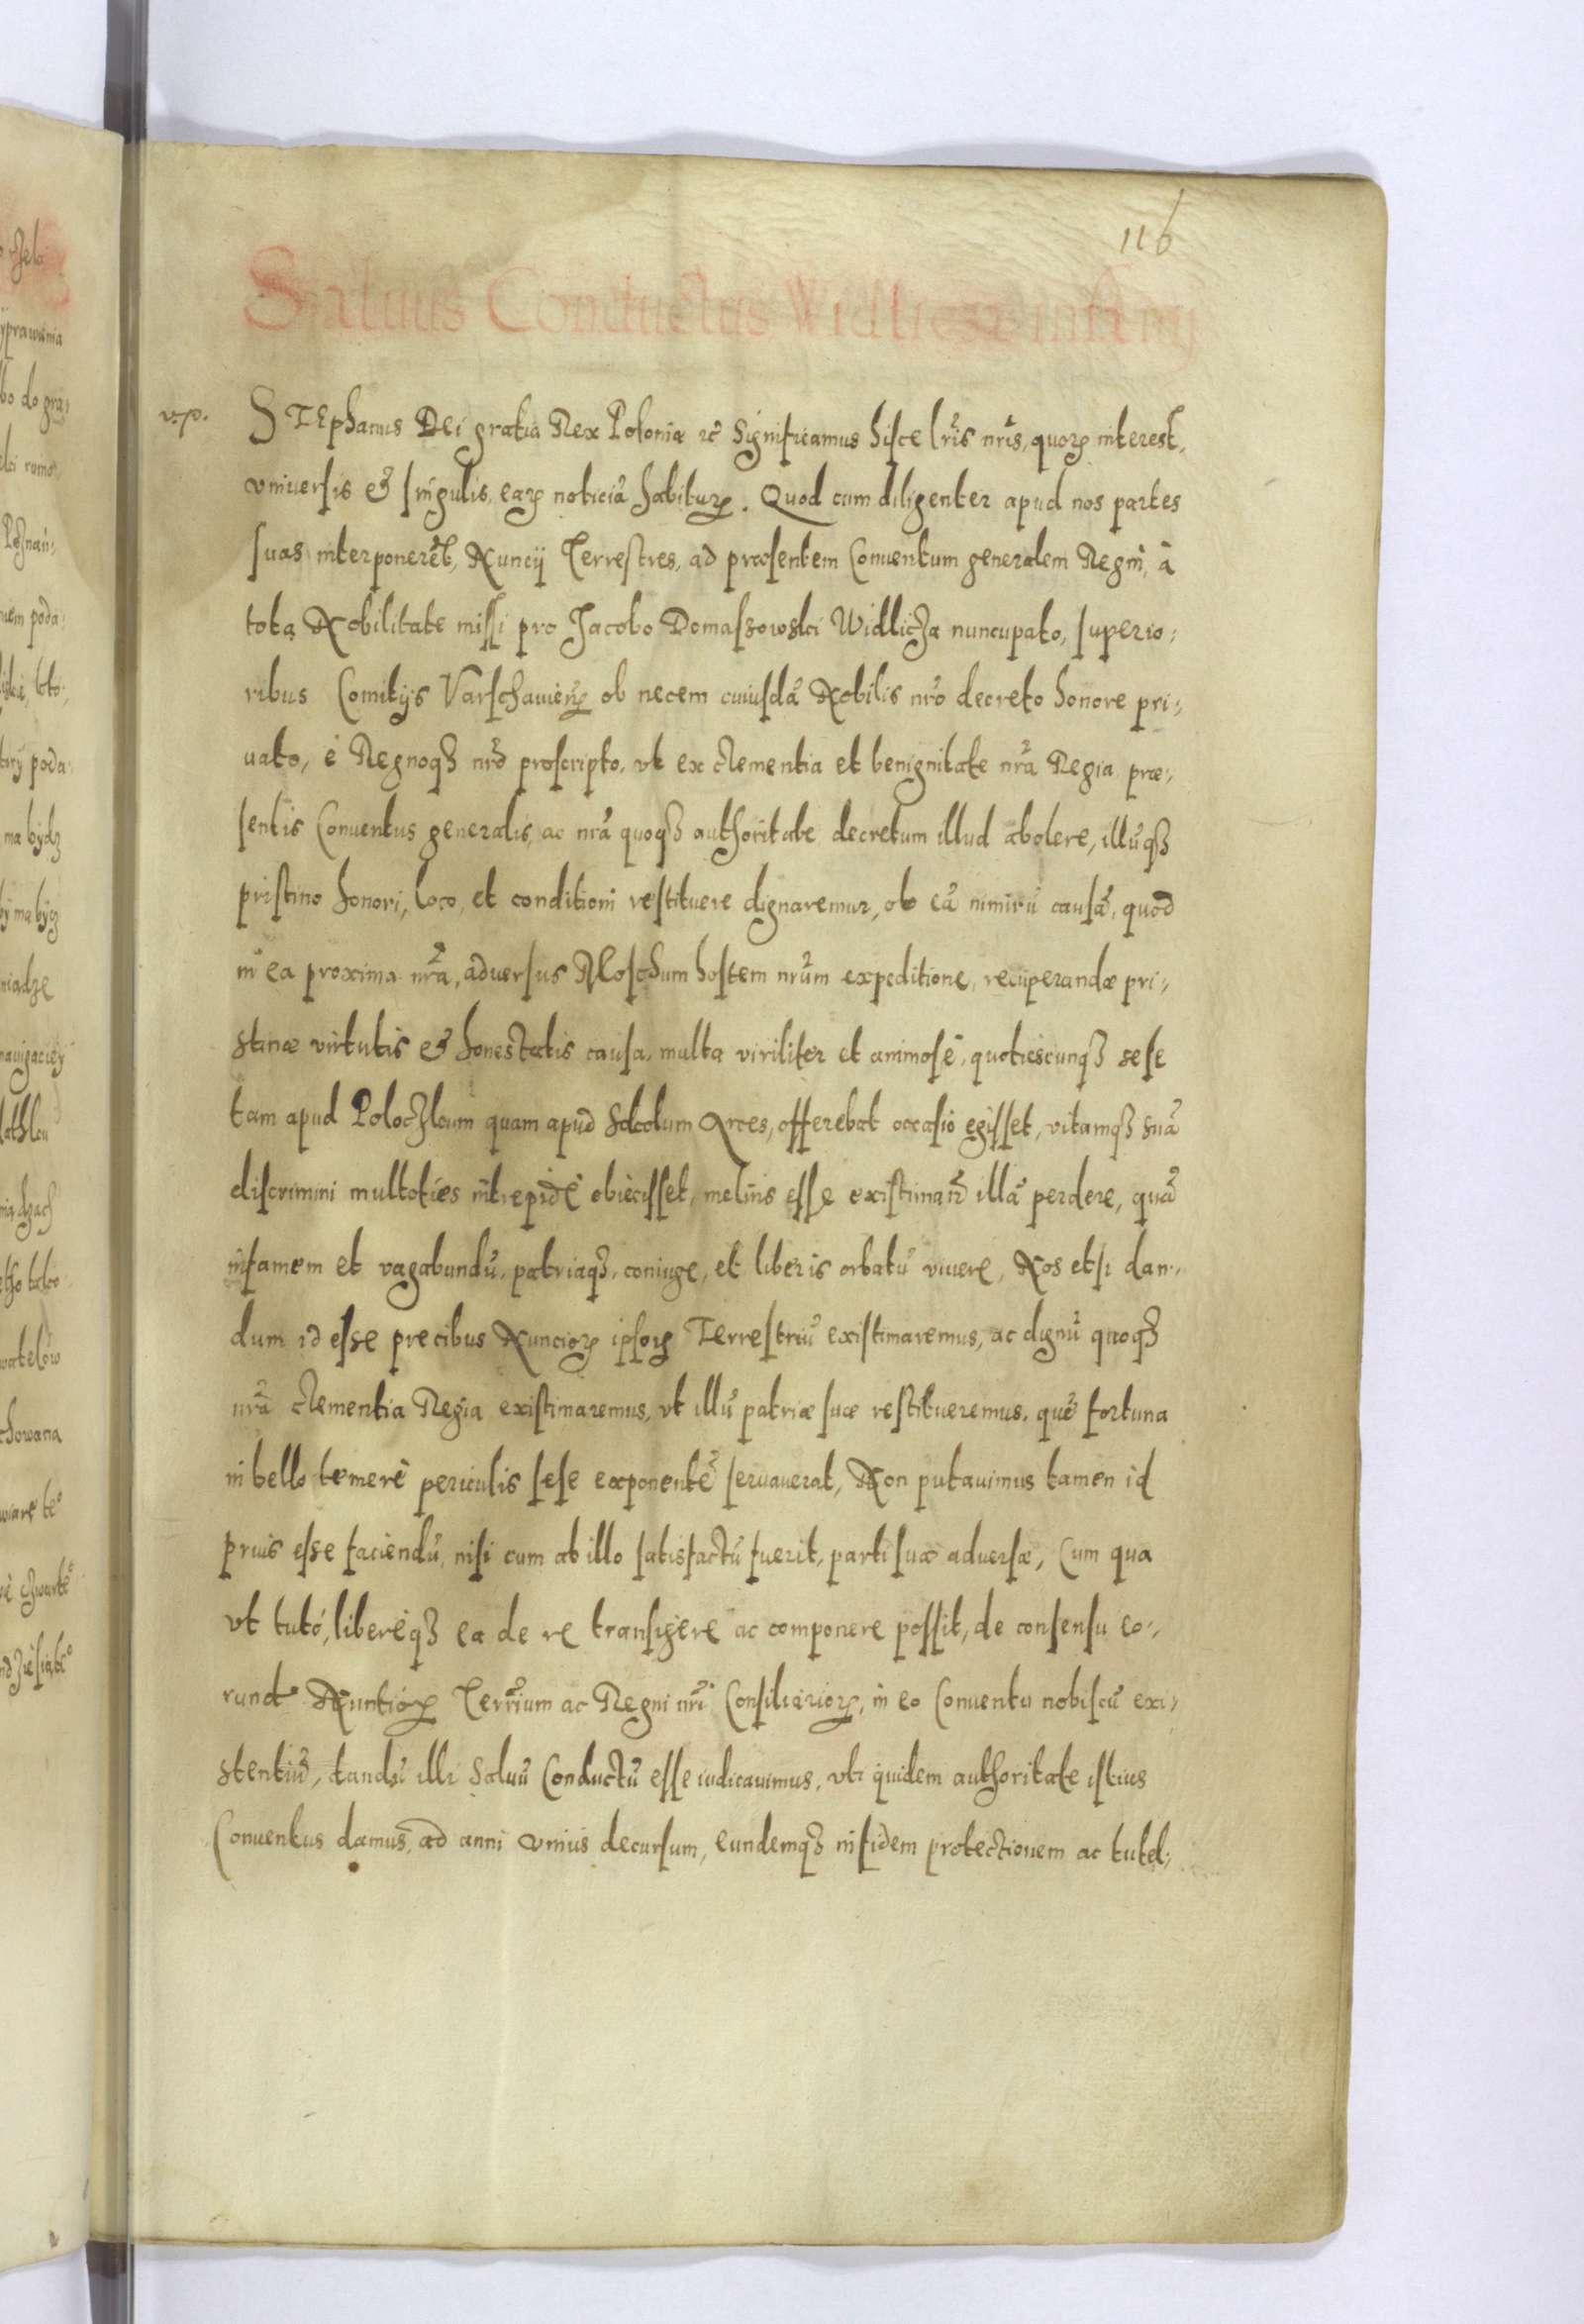 116
Saluus Conductus Widlicza
v.p.
STEphanus Dei gratia Rex Poloniæ ꝛc̃ Significamus hisce lr̃is nr̃is, quoꝝ interest,
vniuersis & singulis, eaꝝ noticiã habituꝝ. Quod cum diligenter apud nos partes
suas interponerẽt, Nuncij Terrestres, ad præsentem Conuentum generalem Regni, à
tota Nobilitate missi pro Jacobo Domaszowski Widlicza nuncupato, superio⸗
ribus Comitijs Varschauien̄ꝝ ob necem cuiusdã Nobilis nr̃o decreto honore pri⸗
uato, è Regnoqꝫ nr̃o proscripto, vt ex clementia et benignitate nr̃a Regia, præ⸗
sentis Conuentus generalis, ac nr̃a quoqꝫ authoritate decretum illud abolere, illũqꝫ
pristino honori, loco, et conditioni restituere dignaremur, ob eã nimirũ causã, quod
in ea proxima nr̃a, aduersus Moschum hostem nr̃um expeditione, recuperandæ pri⸗
stinæ virtutis & honestatis causa, multa viriliter et animosè, quotiescunqꝫ sese
tam apud Poloczkum quam apud Sokolum Arces, offerebat occasio egisset, vitamqꝫ suã
discrimini multoties intrepidè obiecisset, melius esse existimans illã perdere, quã
infamem et vagabundũ, patriaqꝫ, coniuge, et liberis orbatũ viuere, Nos etsi dan⸗
dum id esse precibus Nuncioꝝ ipsoꝝ Terrestriũ existimaremus, ac dignũ quoqꝫ
nr̃a clementia Regia existimaremus, vt illũ patriæ suæ restitueremus, quẽ fortuna
in bello temerè periculis sese exponentẽ seruauerat, Non putauimus tamen id
prius esse faciendũ, nisi cum ab illo satisfactũ fuerit, parti suæ aduersæ, Cum qua
vt tutò, liberèqꝫ ea de re transigere ac componere possit, de consensu eo⸗
rund Nuntioꝝ Terr̃ium ac Regni nr̃i Consiliarioꝝ, in eo Conuentu nobiscũ exi⸗
stentiũ, dandũ illi Saluũ Conductũ esse iudicauimus, vti quidem authoritate istius
Conuentus damus, ad anni vnius decursum, eundemqꝫ in fidem protectionem ac tutel⸗